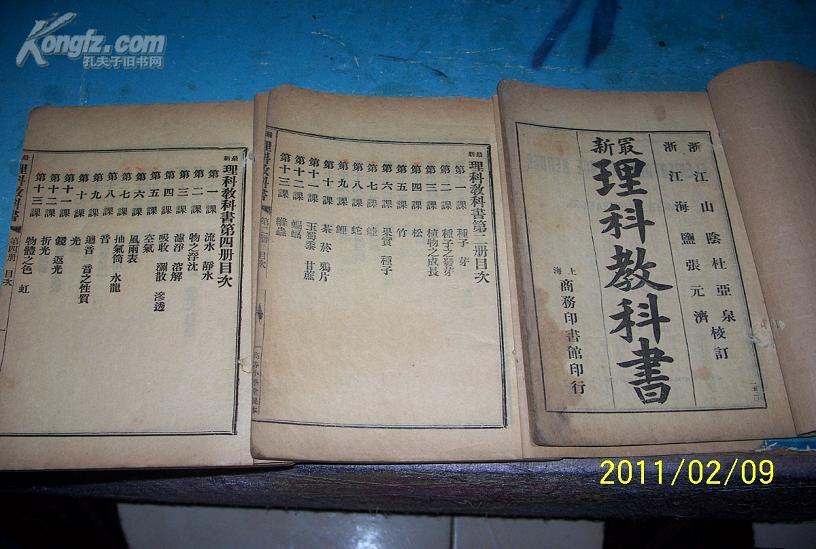 Kongfz.com
孔夫子旧书网
最新
理科教科書
浙江山陰杜亞泉
浙江海鹽張元濟
校訂
上海
商務印書館印行
最新理科教科書第二册目次
第一課 種子 芽
第二課 種子之發芽
第三課 植物之成長
第四課 松
第五課 竹
第六課 果實 種子
第七課 蛙
第八課 蛇
第九課 鯉
第十課 茶 菸 鴉片
第十一課 玉蜀黍 甘蔗
第十二課 蝙蝠
第十三課
最新理科教科書 目次
最新理科教科書第四册目次
第一課 流水 靜水
第二課 物之浮沈
第三課 濾浮 溶解
第四課 吸收 瀰散 滲透
第五課 空氣
第六課 風雨表
第七課 抽氣筒 水龍
第八課 音
第九課 迴音 音之性質
第十課 光
第十一課 鏡 返光
第十二課 折光
第十三課 物體之色 虹
最新理科教科書 第四册 目次
2011/02/09